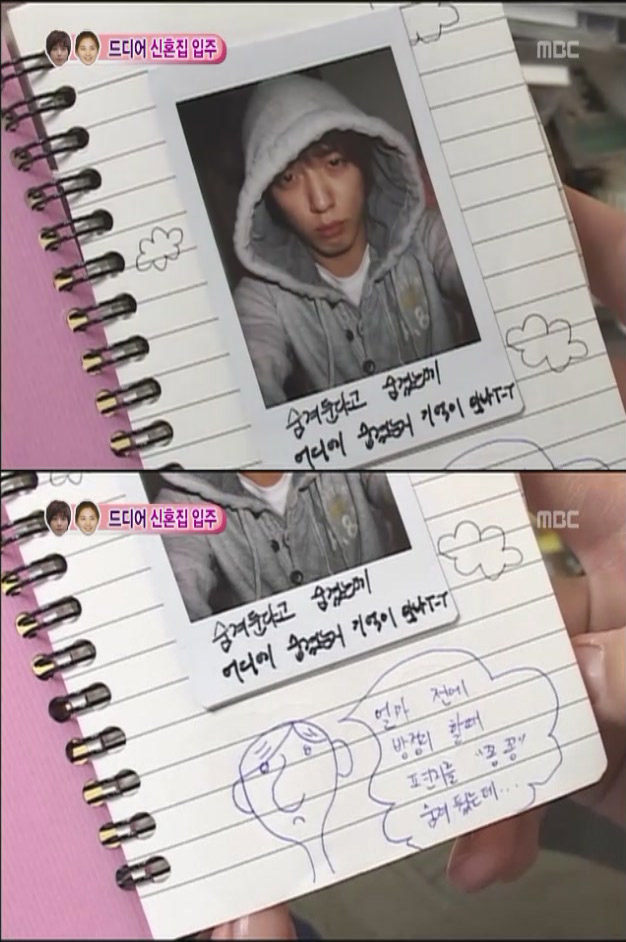 드디어 신혼집 입주
MBC
숨겨둔다고 숨겼는데
어디에 숨겼는지 기억이 안나T-T
드디어 신혼집 입주
MBC
숨겨둔다고 숨겼는데
어디에 숨겼는지 기억이 안나T-T
얼마 전에
방정리 할때
편지를 "꽁꽁"
숨겨 뒀는데...